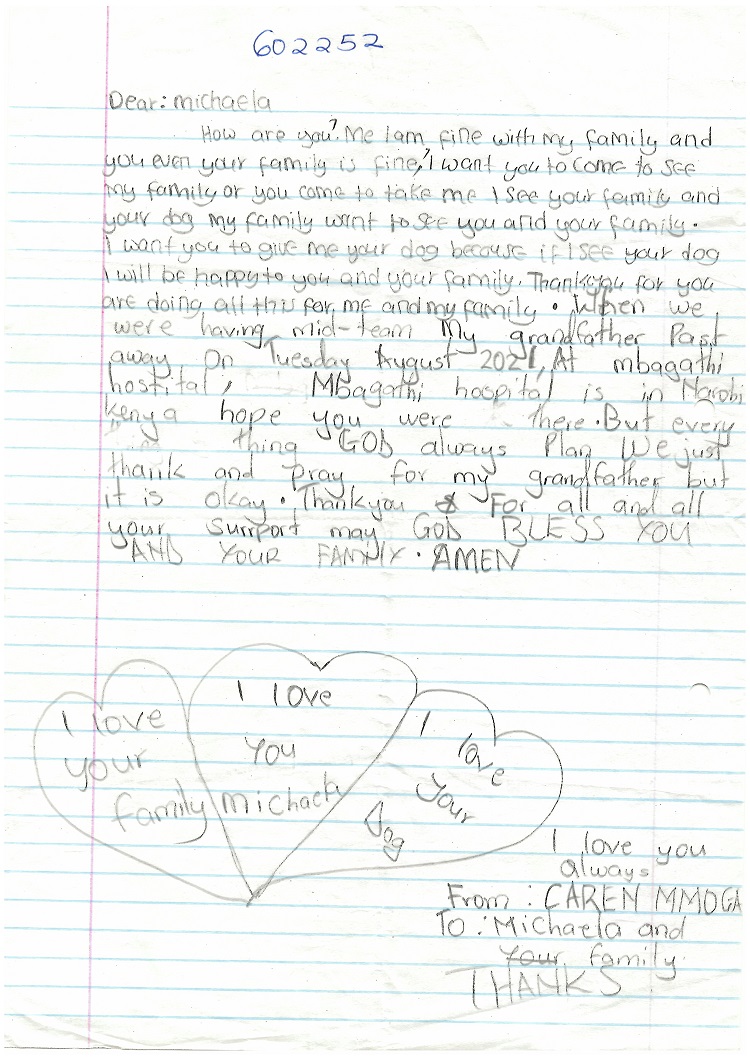 602252
Dear: michaela
How are you? Me I am fine with my family and
you even your family is fine,? I want you to come to see
my family or you come to take me I see your family and
your dog my family want to see you and your family.
I want you to give me your dog because if I see your dog
I will be happy to you and your family. Thankyou for you
are doing all this for me and my family. When we
were having mid-team My grandfather Past
away On Tuesday August 2021, At mbagathi
hostital, Mbagathi hospital is in Narobi
kenya hope you were there. But every
thing GOD always Plan We just
thank and pray for my grandfather but
it is okay. Thankyou For all and all
your surrport may GOD BLESS YOU
AND YOUR FAMILY. AMEN
I love
your
family
I love
You
Michaela
I love
your
Dog
I love you
always
From: CAREN MMOGA
To: Michaela and
your family.
THANKS